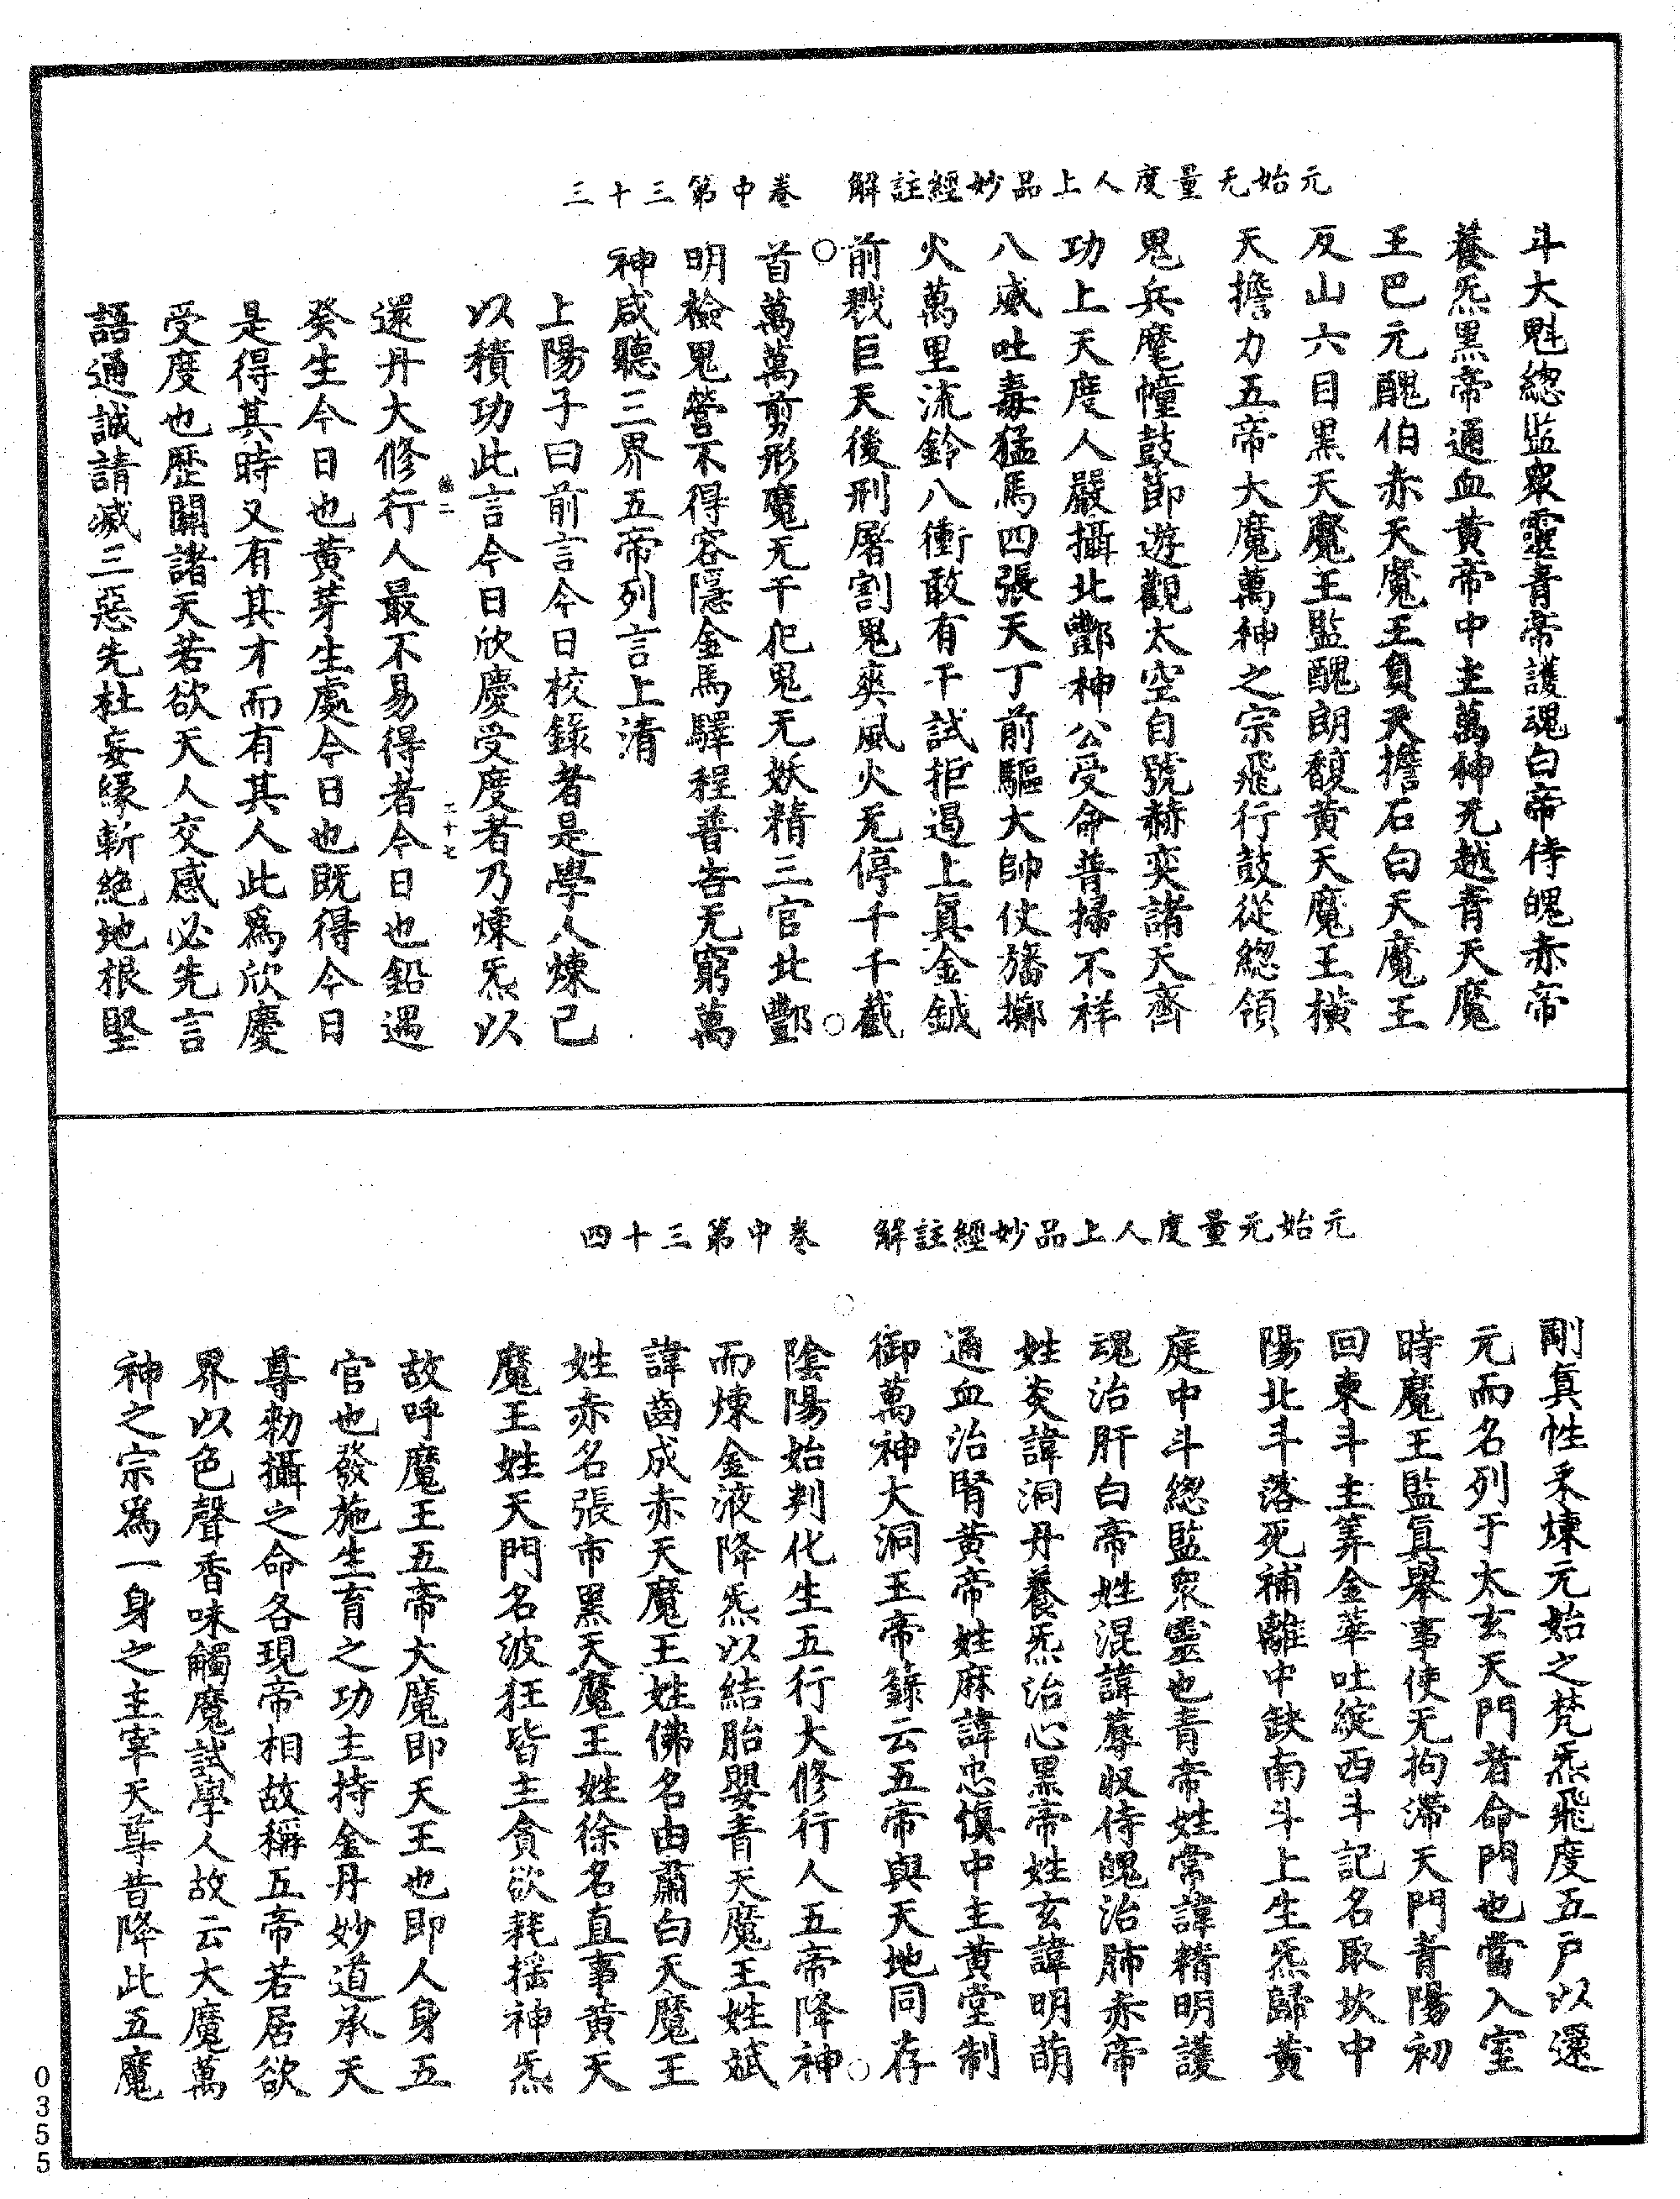 元始无量度人上品妙經註解　卷中第三十三
斗大魁總監眾靈青帝護魂白帝侍魄赤帝
養炁黑帝通血黃帝中主萬神无越青天魔
王巴元醜伯赤天魔王負天擔石白天魔王
反山六目黑天魔王監醜朗馥黃天魔王橫
天擔力五帝大魔萬神之宗飛行鼓從總領
鬼兵麾幢鼓節遊觀太空自號赫奕諸天齊
功上天度人嚴攝北酆神公受命普掃不祥
八威吐毒猛馬四張天丁前驅大帥仗旛擲
火萬里流鈴八衝敢有干試拒遏上真金鉞
前戮巨天後刑屠割鬼爽風火无停千千截
首萬萬剪形魔无干犯鬼无妖精三官北酆
明檢鬼營不得容隱金馬驛程普告无窮萬
神咸聽三界五帝列言上清
上陽子曰前言今日校錄者是學人煉己
以積功此言今日欣慶受度者乃煉炁以
還丹大修行人最不易得者今日也鉛遇
癸生今日也黃芽生處今日也既得今日
是得其時又有其才而有其人此爲欣慶
受度也歷關諸天若欲天人交感必先言
語通誠請滅三惡先杜妄緣斬絕地根堅
元始无量度人上品妙經註解　卷中第三十四
剛真性采煉元始之梵炁飛度五戶以還
元而名列于太玄天門者命門也當入室
時魔王監真舉事使无拘滯天門青陽初
回東斗主筭金華吐綻西斗記名取坎中
陽北斗落死補離中缺南斗上生炁歸黃
庭中斗總監眾靈也青帝姓常諱精明護
魂治肝白帝姓混諱蓐收侍魄治肺赤帝
姓炎諱洞丹養炁治心黑帝姓玄諱明萌
通血治腎黃帝姓麻諱忠慎中主黃堂制
御萬神大洞玉帝錄云五帝與天地同存
陰陽始判化生五行大修行人五帝降神
而煉金液降炁以結胎嬰青天魔王姓斌
諱齒成赤天魔王姓佛名由肅白天魔王
姓赤名張市黑天魔王姓徐名直事黃天
魔王姓天門名波狂皆主貪欲耗搖神炁
故呼魔王五帝大魔即天王也即人身五
官也發施生育之功主持金丹妙道承天
尊勑攝之命各現帝相故稱五帝若居欲
界以色聲香味觸魔試學人故云大魔萬
神之宗爲一身之主宰天尊昔降此五魔
0355